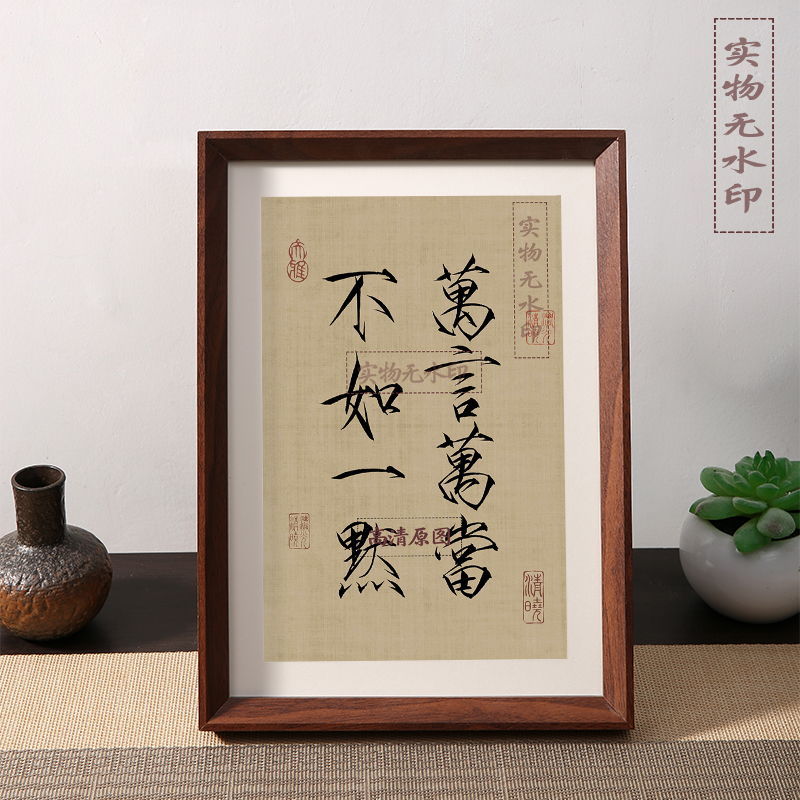 萬言萬當
不如一黙
实物无水印
实物无水印
实物无水印
高清原图
清曉
大雅